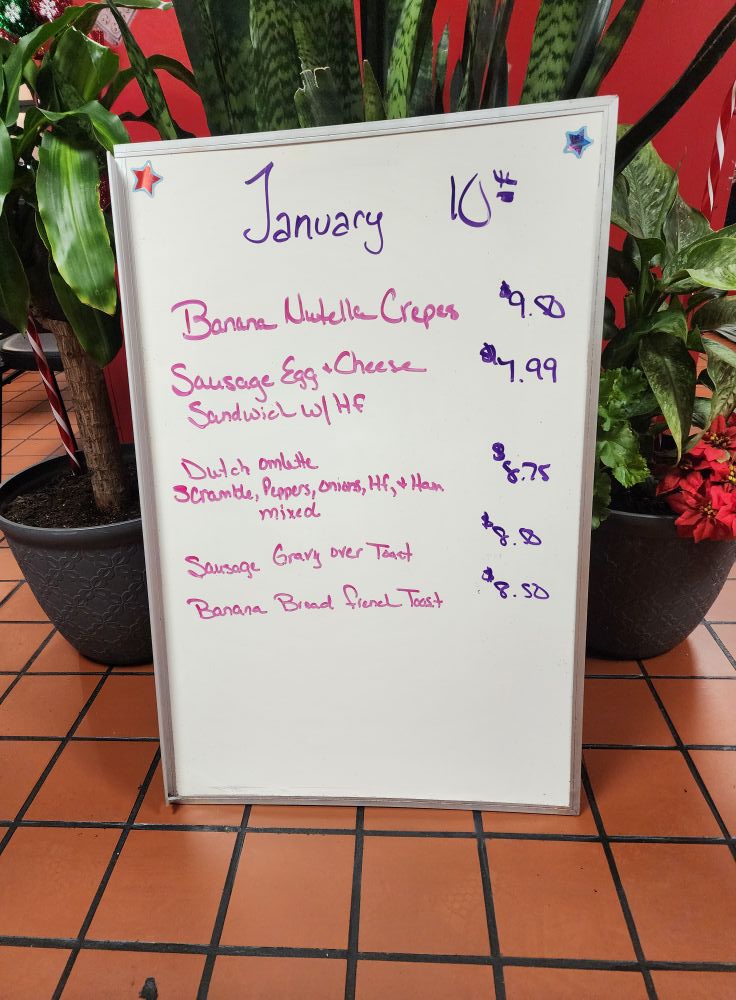 January 10th
Banana Nutella Crepes $9.50
Sausage Egg + Cheese $7.99
Sandwich w/ HF
Dutch omlette $8.75
Scramble, Peppers, onions, HF, + Ham
mixed
Sausage Gravy over Toast $8.50
Banana Bread french Toast $8.50